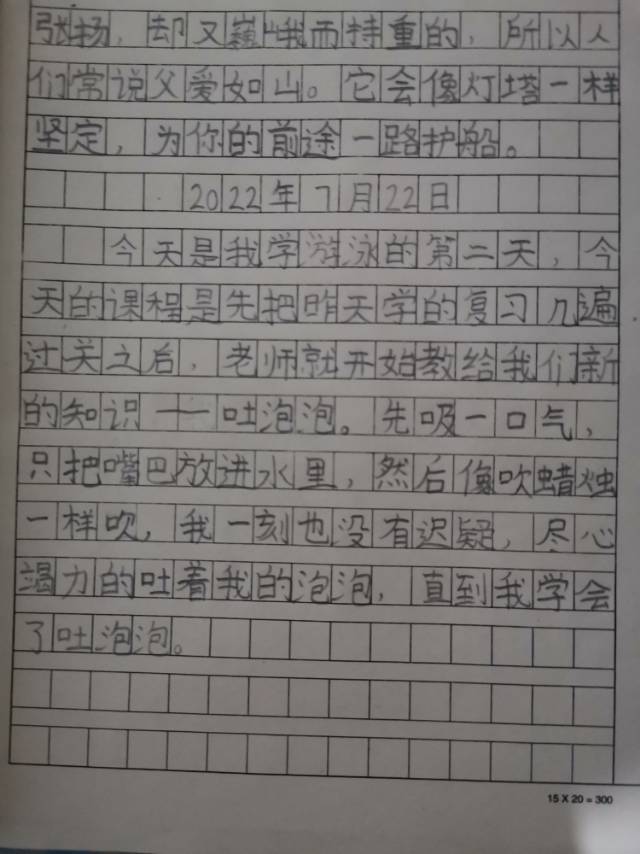 张扬，却又巍峨而持重的，所以人
们常说父爱如山。它会像灯塔一样
坚定，为你的前途一路护船。
2022年7月22日
今天是我学游泳的第二天，今
天的课程是先把昨天学的复习几遍
过关之后，老师就开始教给我们新
的知识——吐泡泡。先吸一口气，
只把嘴巴放进水里，然后像吹蜡烛
一样吹，我一刻也没有迟疑，尽心
竭力的吐着我的泡泡，直到我学会
了吐泡泡。
15 X 20 = 300